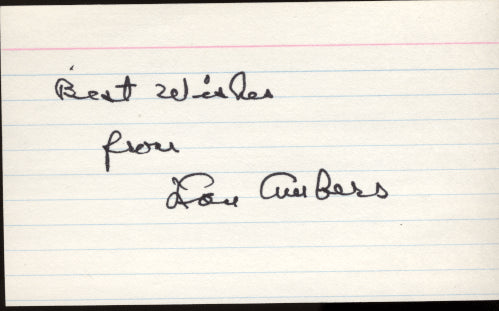 Best Wishes
from
Lou Ambers